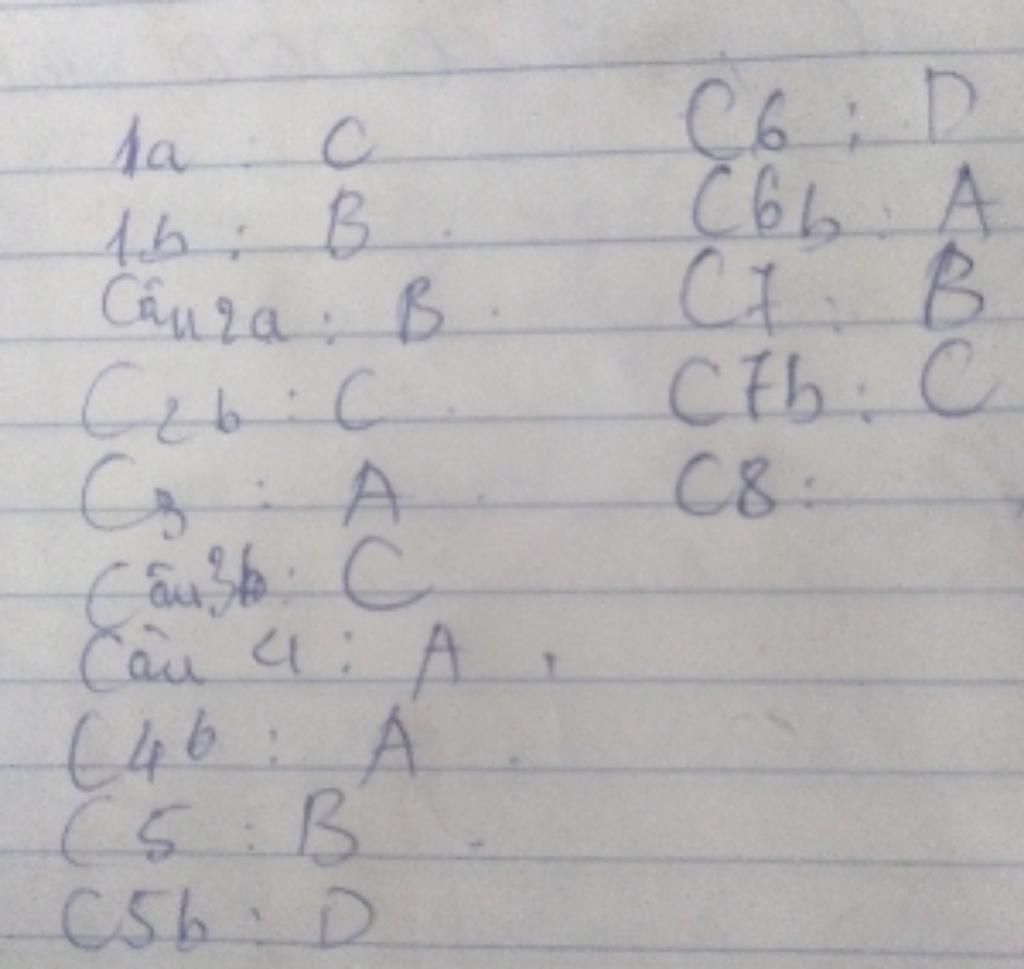 1a : C
1b : B
Câu 2a : B
C2b : C
C3 : A
Câu 3b : C
Câu 4 : A
C4b : A
C5 : B
C5b : D
C6 : D
C6b : A
C7 : B
C7b : C
C8 :